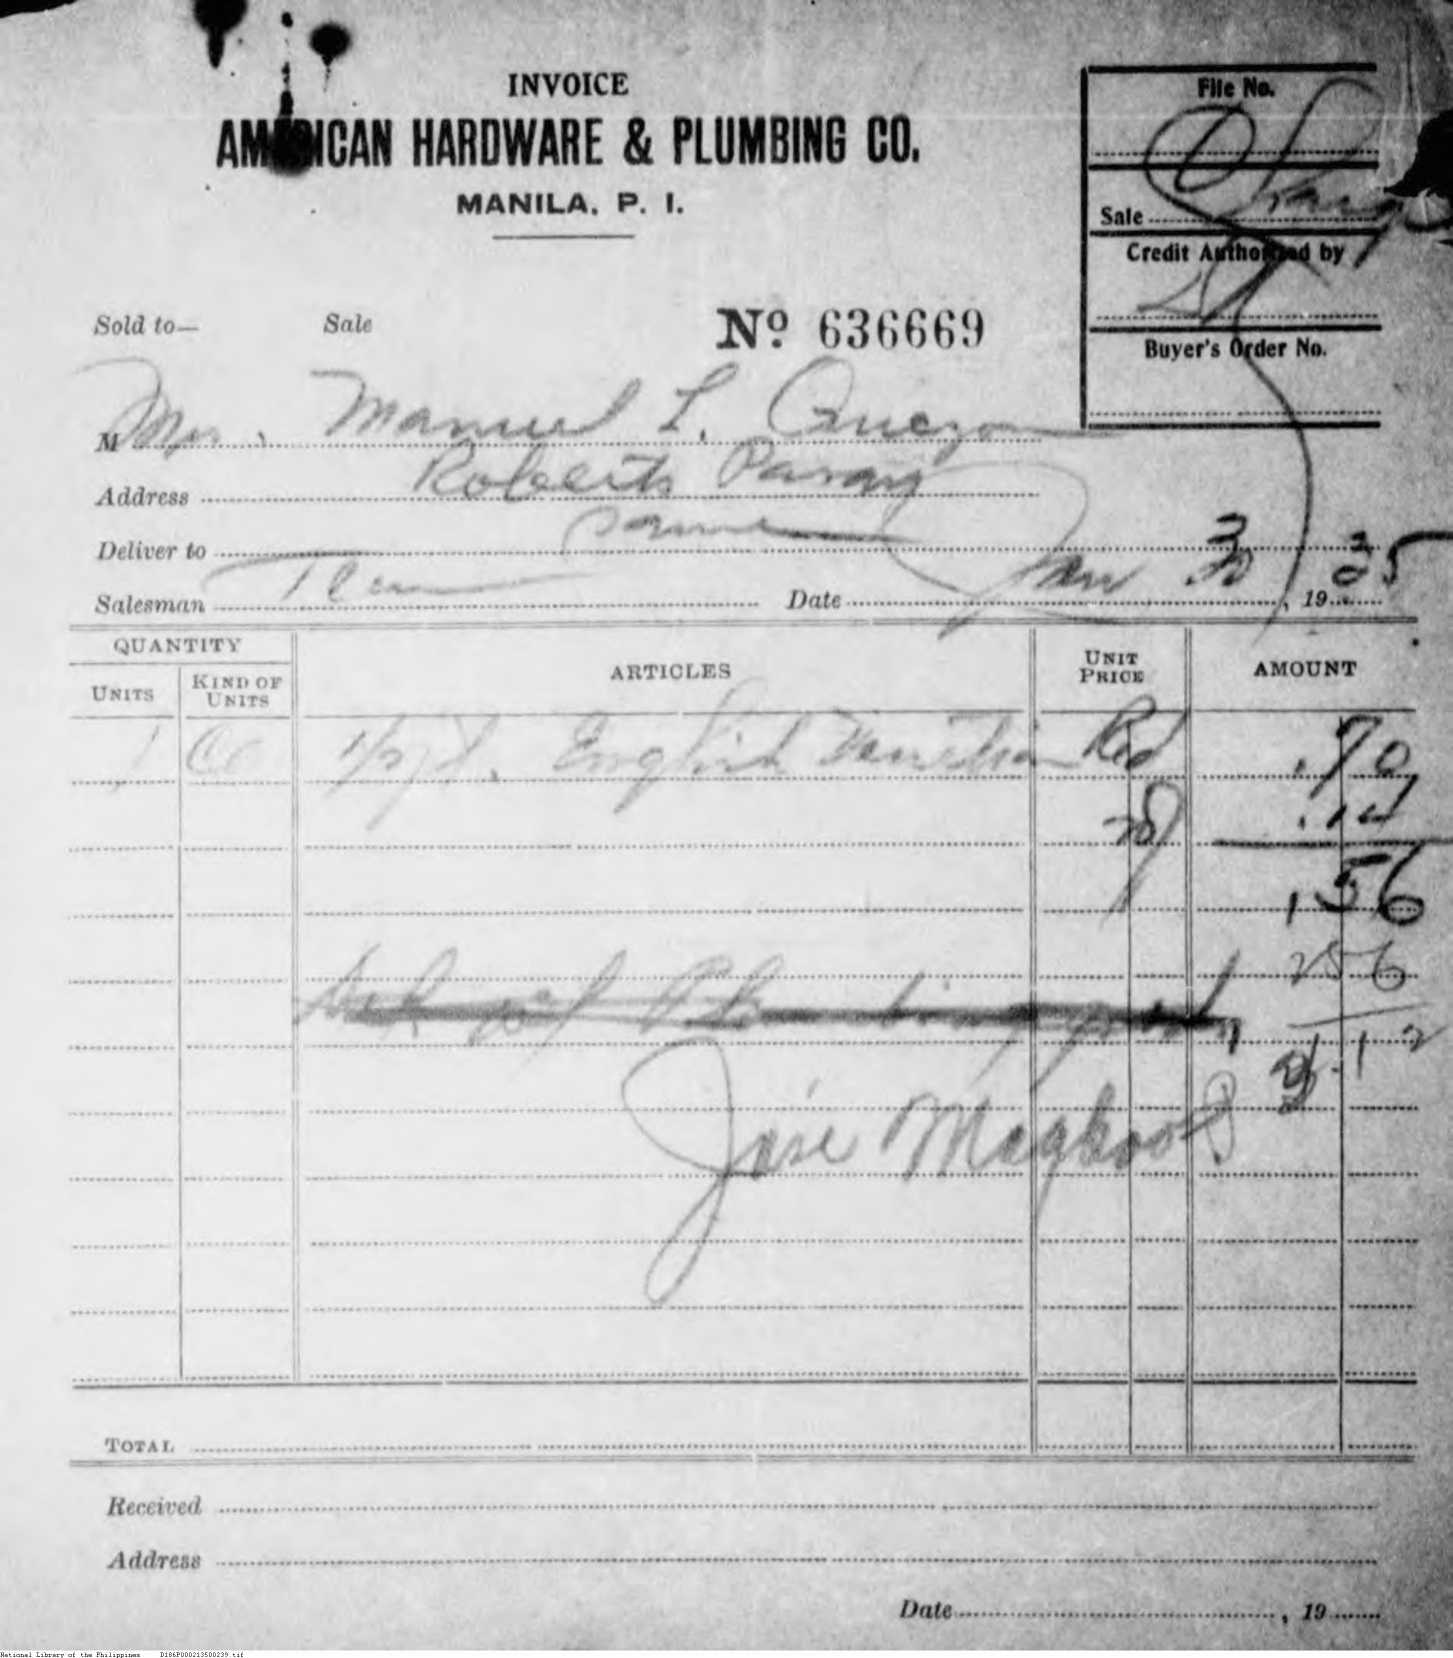 INVOICE
AMERICAN HARDWARE & PLUMBING CO.
MANILA, P. I.
File No.
Sale Charge
Credit Authorized by
Buyer's Order No.
Sold to— Sale
No 636669
M Mr. Manuel L. Quezon
Address Roberts Pasay
Deliver to same
Salesman
Date Jan 30, 1935
QUANTITY ARTICLES UNIT PRICE AMOUNT
UNITS KIND OF UNITS
1 1/2 pt. English Venetian Red .70
.14
.56
256
3.12
Jose
TOTAL
Received
Address
Date , 19
National Library of the Philippines D186P000213500239.tif